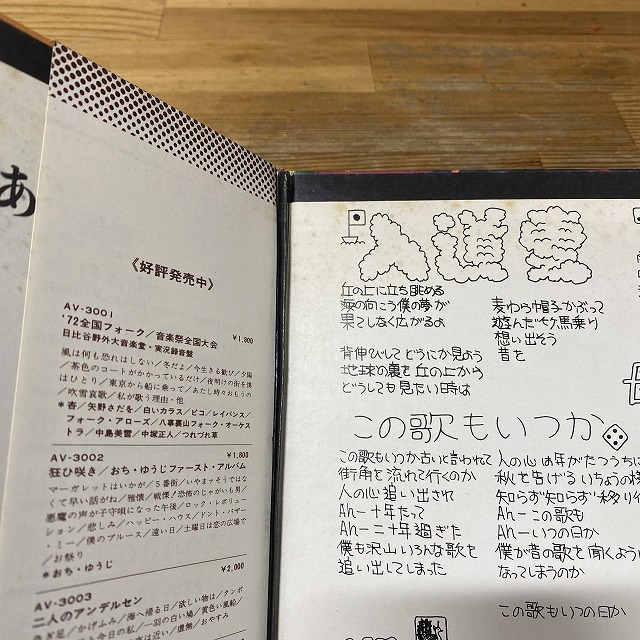 あ
《好評発売中》
AV-3001
¥1,800
'72全国フォーク/音楽祭全国大会
日比谷野外大音楽堂・実況録音盤
風は何も恐れはしない/冬だよ/今生きる歓び/夕陽
/茶色のコートがかかっているだけ/夜明けの街を僕
はひとり/東京から船に乗って/あたし時々おもうの
/吹雪哀歌/私が歌う理由・他
*杏/矢野さだを/白いカラス/ピコ/レイバンス/
フォーク・アローズ/八事裏山フォーク・オーケス
トラ/中島美雪/中塚正人/つれづれ草
AV-3002
¥1,800
狂ひ咲き/おち・ゆうじファースト・アルバム
マーガレットはいかが/5番街/いやまそうではな
くて早い話がね/雅懐/戦慄/恐怖のじゃがいも男/
悪魔の声が子守唄になった午後/ロック・レボリュー
ション/悲しみ/ハッピー・ハウス/ドント・バザ
ー・ミー/僕のブルース/遠い日/土曜日は恋の広場で
/お祭り
*おち・ゆうじ
¥2,000
AV-3003
二人のアンデルセン
急ぎ足/かげふみ/海へ帰る日/欲しい物は/クンポ
今日の私/一羽の白い鳩/黄色い風船/
は近い/虚無/おやすみ
入道雲
丘の上に立ち眺める
涙の向こう僕の夢が
果てしなく広がるの
背伸びしてどうにか見よう
地球の裏を丘の上から
どうしても見たい時は
麦わら帽子かぶって
遊んだ竹馬乗り
想い出そう
昔を
この歌もいつか
この歌もいつか古いと言われて
街角を流れて行くのか
人の心追い出されて
Ah―十年たって
Ah―二十年過ぎた
僕も沢山いろんな歌を
追い出してしまった
人の心は年がたつうちに
秋を告げるいちょうの様
知らず知らず移り
Ah―この歌も
Ah―いつの日か
僕が昔の歌を聞くように
なってしまうのか
この歌もいつの日か